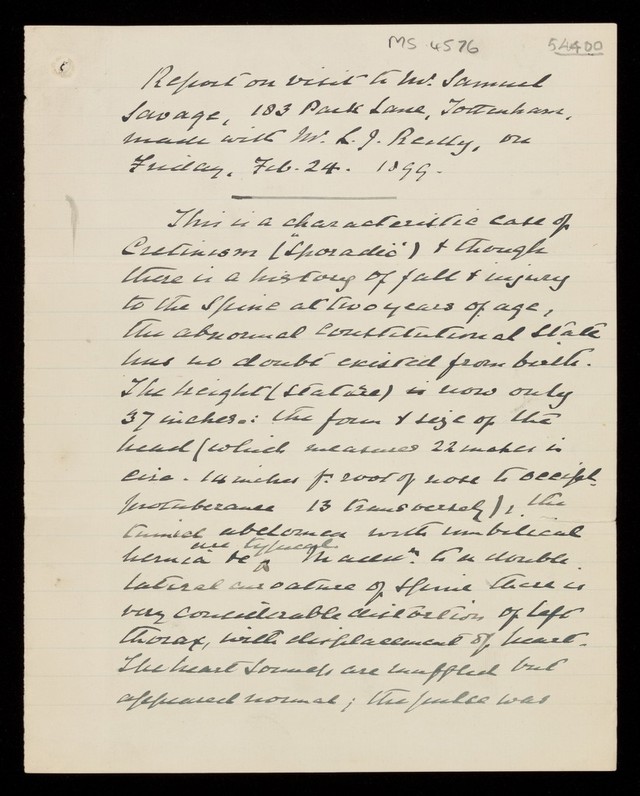 MS 4576
54400
Report on visit to Mr. Samuel
Savage, 183 Park Lane, Tottenham,
made with Mr. L. J. Reilly, on
Friday, Feb. 24. 1899.
This is a characteristic case of
Cretinism ("Sporadic") & though
there is a history of fall & injury
to the Spine at two years of age,
the abnormal constitutional State
has no doubt existed from birth.
The height (stature) is now only
37 inches: the form & size of the
head (which measures 22 inches in
circ. 14 inches fr. root of nose to occipt.
protuberance 13 transversely); the
tumid abdomen with umbilical
hernia &c are typical.
to a double
lateral curvature of Spine there is
very considerable distortion of left
thorax, with displacement of heart.
The heart sounds are muffled but
appeared normal; the pulse was